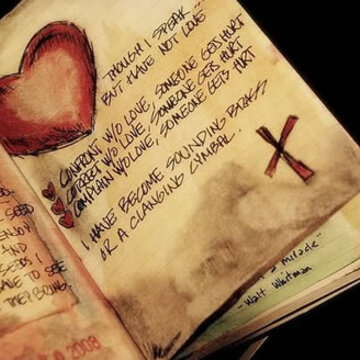 THOUGH I SPEAK...
BUT HAVE NOT LOVE
CONFRONT W/O LOVE, SOMEONE GETS HURT
CORRECT W/O LOVE, SOMEONE GETS HURT
COMPLAIN W/O LOVE, SOMEONE GETS HURT
I HAVE BECOME SOUNDING BRASS
OR A CLANGING CYMBAL.
SEED
ENJOY
AND
SEEDS I
HAVE TO SEE
THEY BRING.
2008
a miracle"
-Walt Whitman